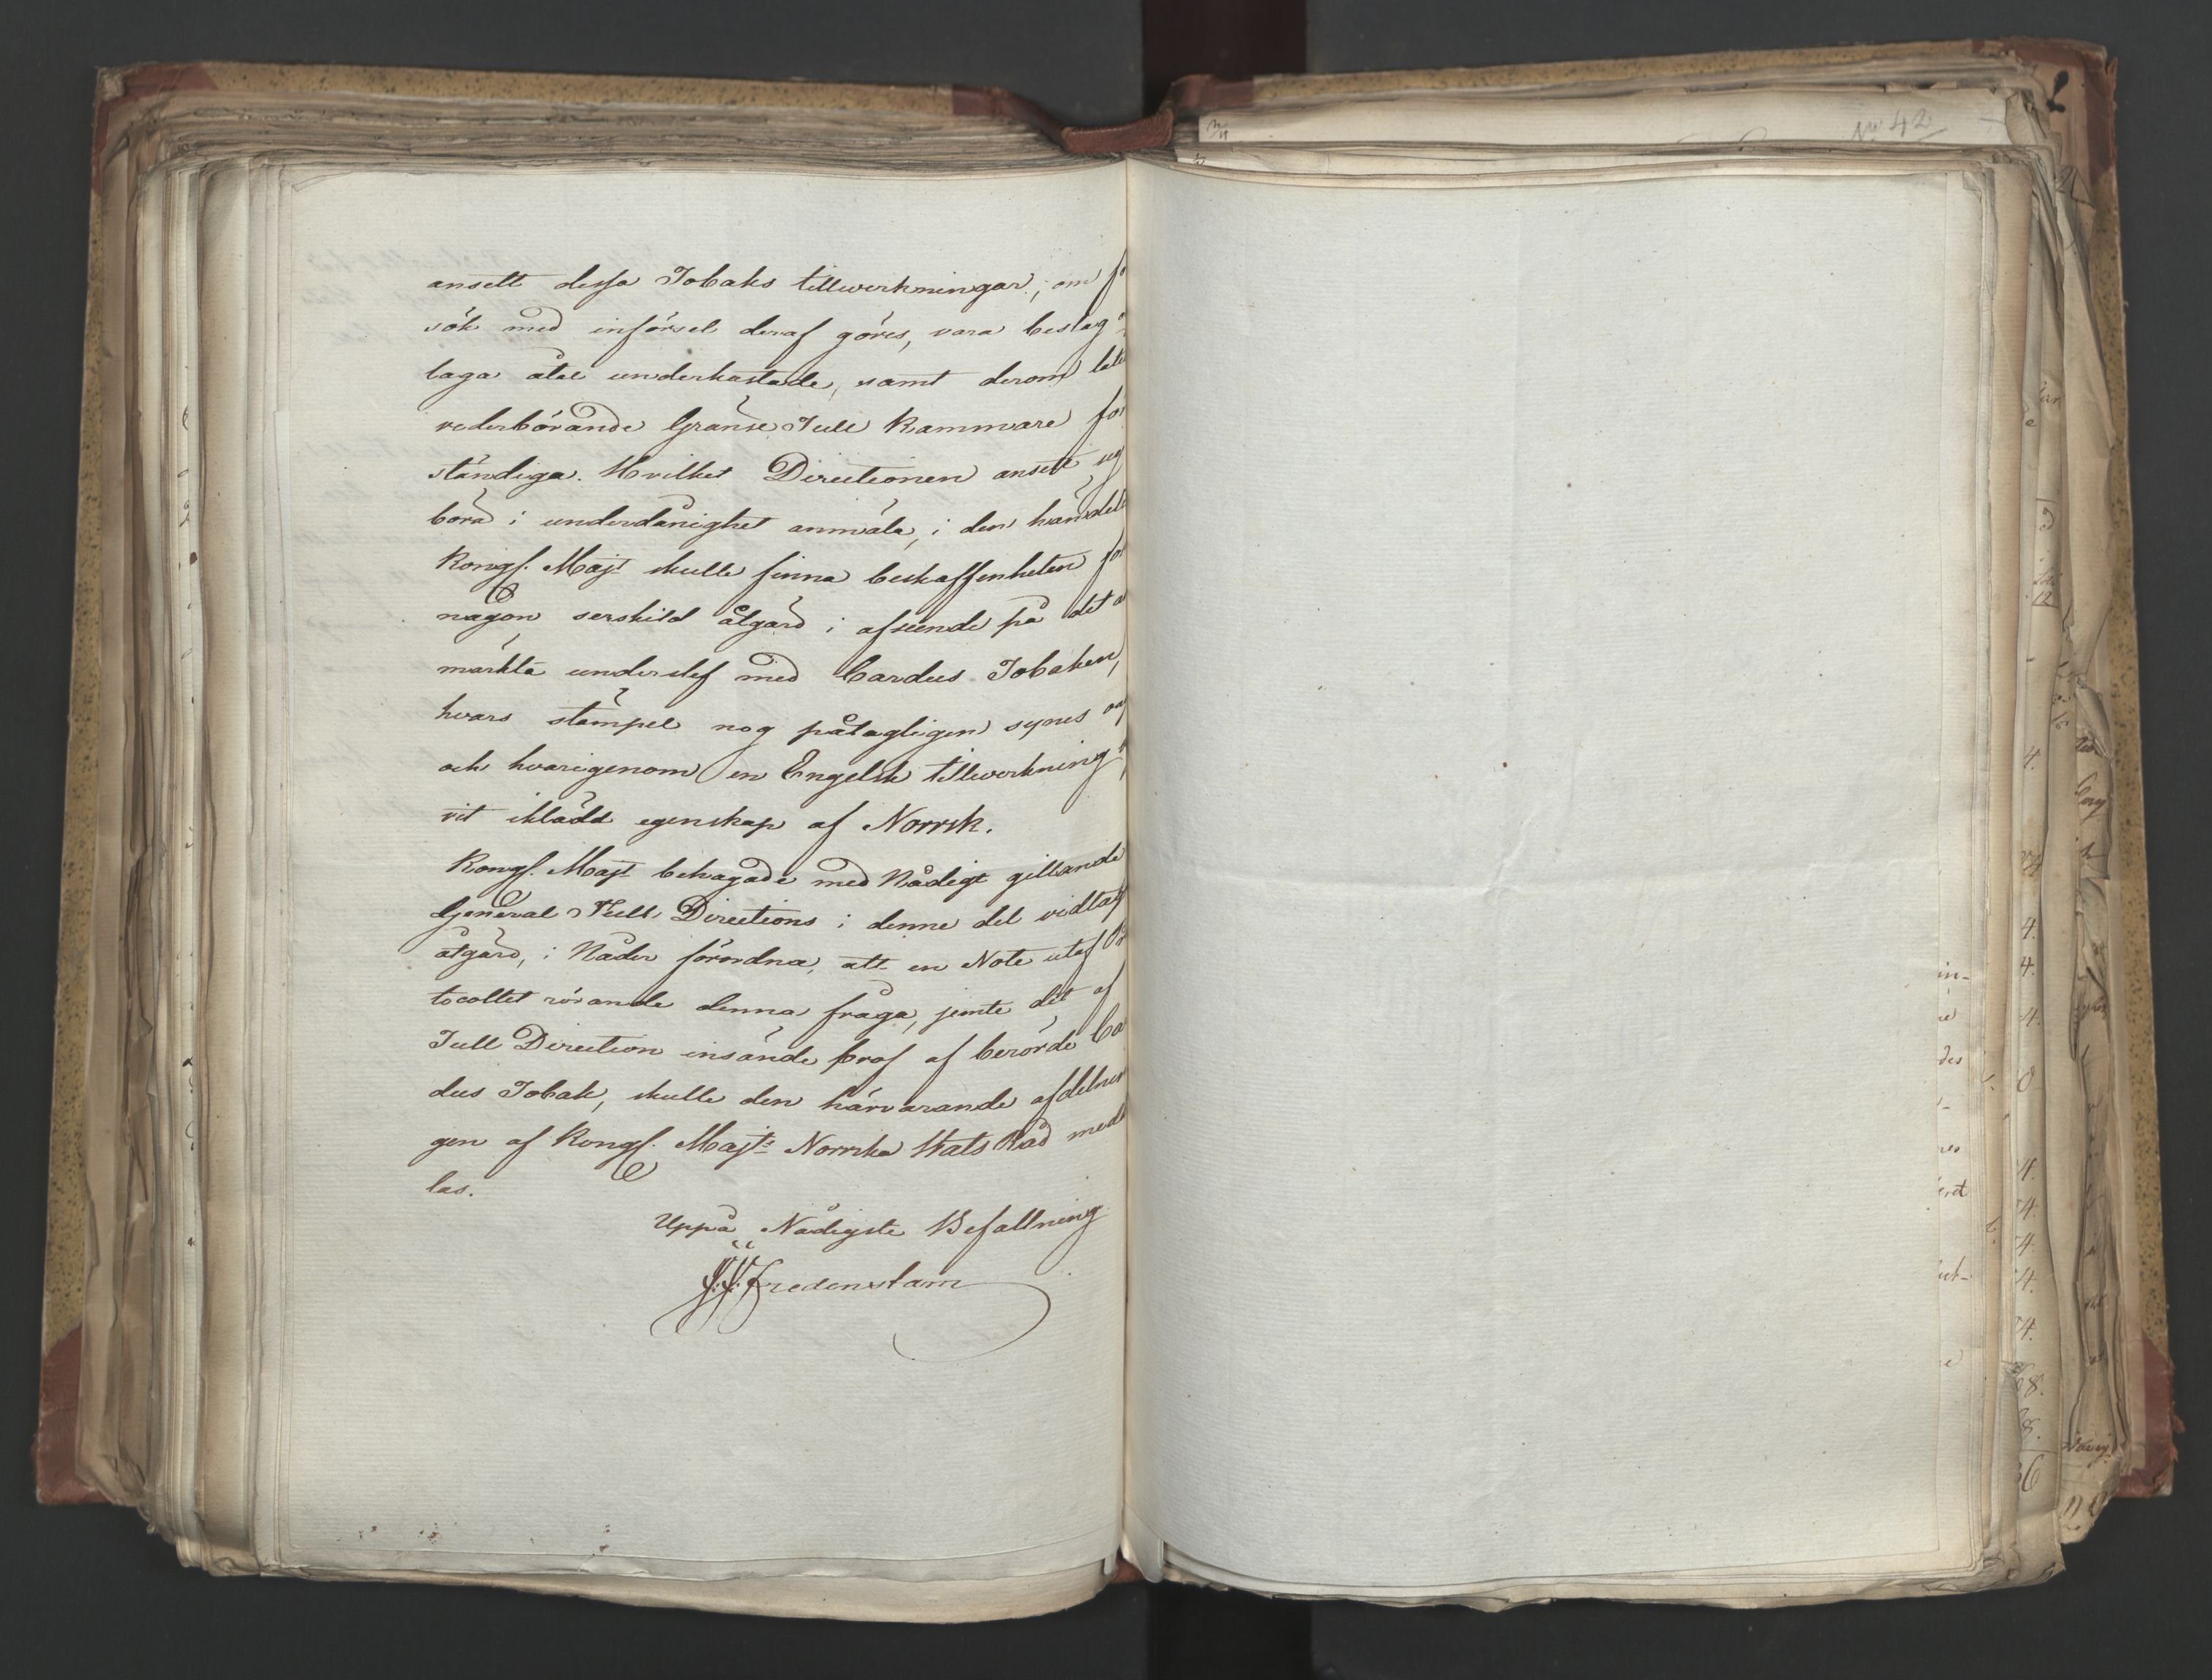 ansett dessa Tobaks tillwerkningar, om fö
sök med införsel deraf göres, vara beslag
laga åtal underkastade, samt derom låti
vederbörande Gränse Tull Kammare för
ständiga. Hvilket Directionen ansett sig
böra i underdånighet anmäla, i den händel
Kongl. Majt skulle finna beskaffenheten för
någon serskild åtgärd i afseende på det a
märkta underslef med Cardus Tobaken,
hvars stämpel nog påtagligen synes
och hvarigenom en Engelsk tillverkning
vit iklädd egenskap af Norrsk.
Kongl. Majt behagade med Nådigt gillande
General Tull Directions i denne del vidtag
åtgärd, i Nåder förordna, att en Note utaf Pr
tocollet rörande denna fråga, jemte det af
Tull Direction insände prof af berörde Ca
dus Tobak, skulle den härvarande afdelnin
gen af Kongl. Majts Norrska Stats Råd medde
las.
Uppå Nådigste Befallning
J. J. Fredenstam
No 42